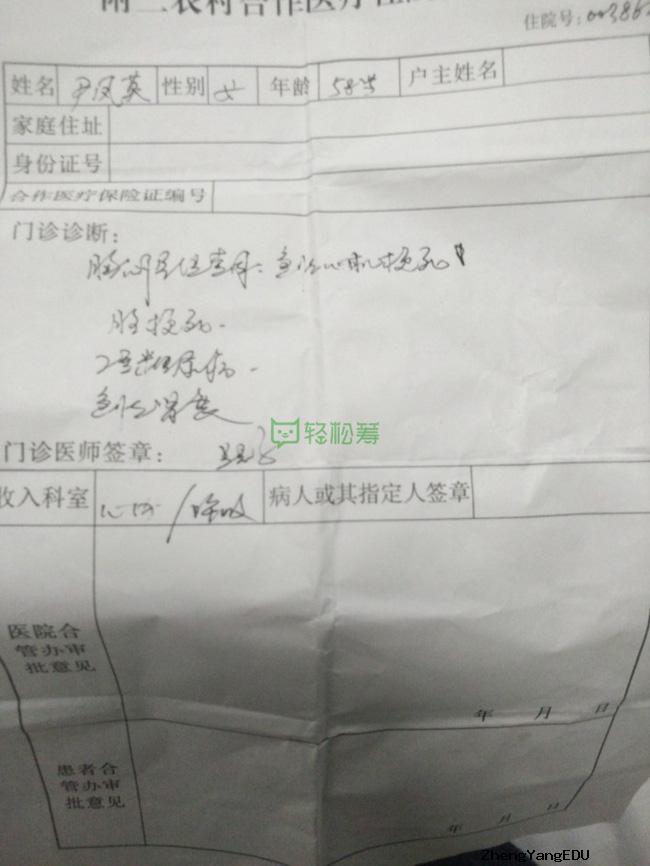 附二农村合作医疗住
住院号:003862
姓名 尹凤英 性别 女 年龄 58岁 户主姓名
家庭住址
身份证号
合作医疗保险证编号
门诊诊断:
急性心肌梗死
脑梗死.
2型糖尿病.
门诊医师签章:
收入科室 心内/呼吸 病人或其指定人签章
轻松筹
医院合
管办审
批意见
年 月 日
患者合
管办审
批意见
年 月 日
ZhengYangEDU